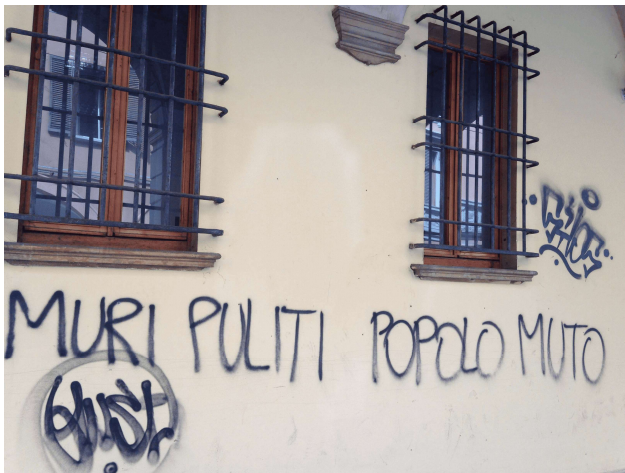 MURI PULITI POPOLO MUTO